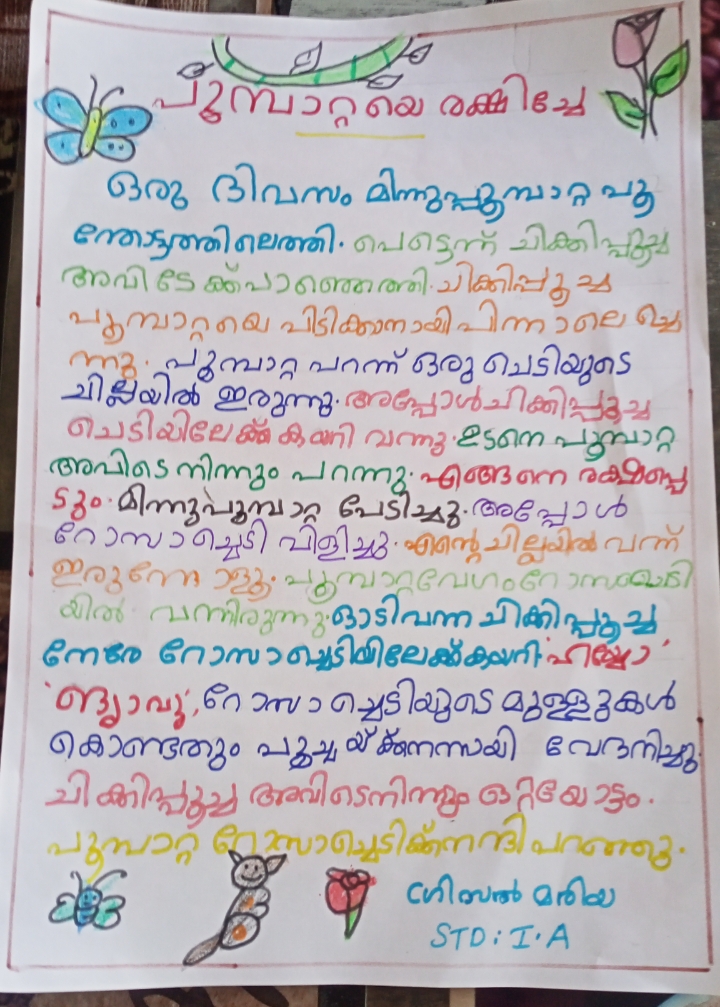 പൂമ്പാറ്റയെ രക്ഷിച്ചേ
ഒരു ദിവസം മിന്നുപ്പൂമ്പാറ്റ പൂ
ന്തോട്ടത്തിലെത്തി. പെട്ടെന്ന് ചിക്കിപ്പൂച്ച
അവിടേക്ക്പാഞ്ഞെത്തി. ചിക്കിപ്പൂച്ച
പൂമ്പാറ്റയെ പിടിക്കാനായി പിന്നാലെ ചെ
ന്നു. പൂമ്പാറ്റ പറന്ന് ഒരു ചെടിയുടെ
ചില്ലയിൽ ഇരുന്നു. അപ്പോൾ ചിക്കിപ്പൂച്ച
ചെടിയിലേക്ക് കയറി വന്നു. ഉടനെ പൂമ്പാറ്റ
അവിടെ നിന്നും പറന്നു. എങ്ങനെ രക്ഷപ്പെ
ടും. മിന്നുപൂമ്പാറ്റ പേടിച്ചു. അപ്പോൾ
റോസാച്ചെടി വിളിച്ചു. എന്റെ ചില്ലയിൽ വന്ന്
ഇരുന്നോളൂ. പൂമ്പാറ്റ വേഗം റോസാച്ചെടി
യിൽ വന്നിരുന്നു. ഓടിവന്ന ചിക്കിപ്പൂച്ച
നേരേ റോസാച്ചെടിയിലേക്ക് കയറി. 'ഹയ്യോ'
'ങ്യാവൂ', റോസാച്ചെടിയുടെ മുള്ളുകൾ
കൊണ്ടതും പൂച്ചയ്ക്ക് നന്നായി വേദനിച്ചു.
ചിക്കിപ്പൂച്ച അവിടെനിന്നും ഒറ്റയോട്ടം.
പൂമ്പാറ്റ റോസാച്ചെടിക്ക് നന്ദി പറഞ്ഞു.
ഗ്രിസൽ മരിയ
STD: I.A